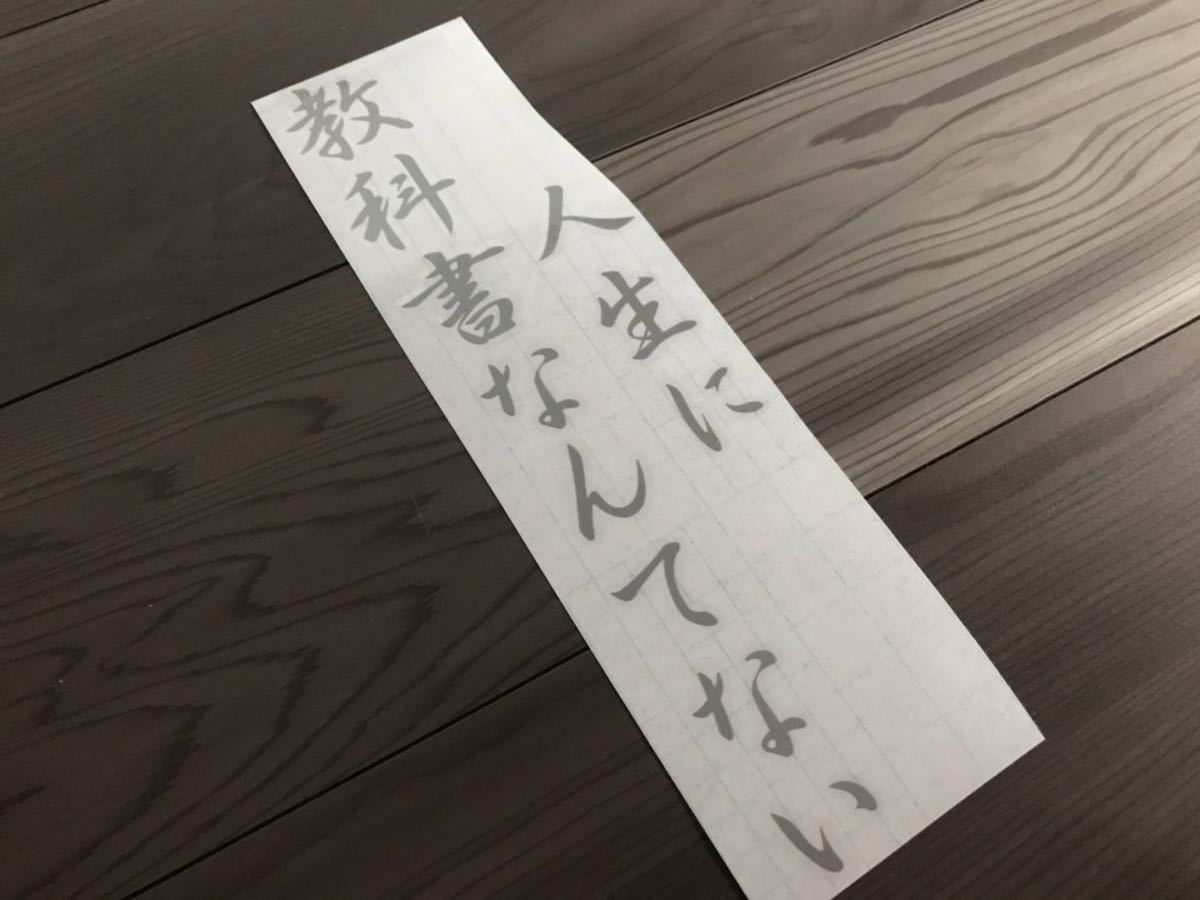 人生に
教科書なんてない